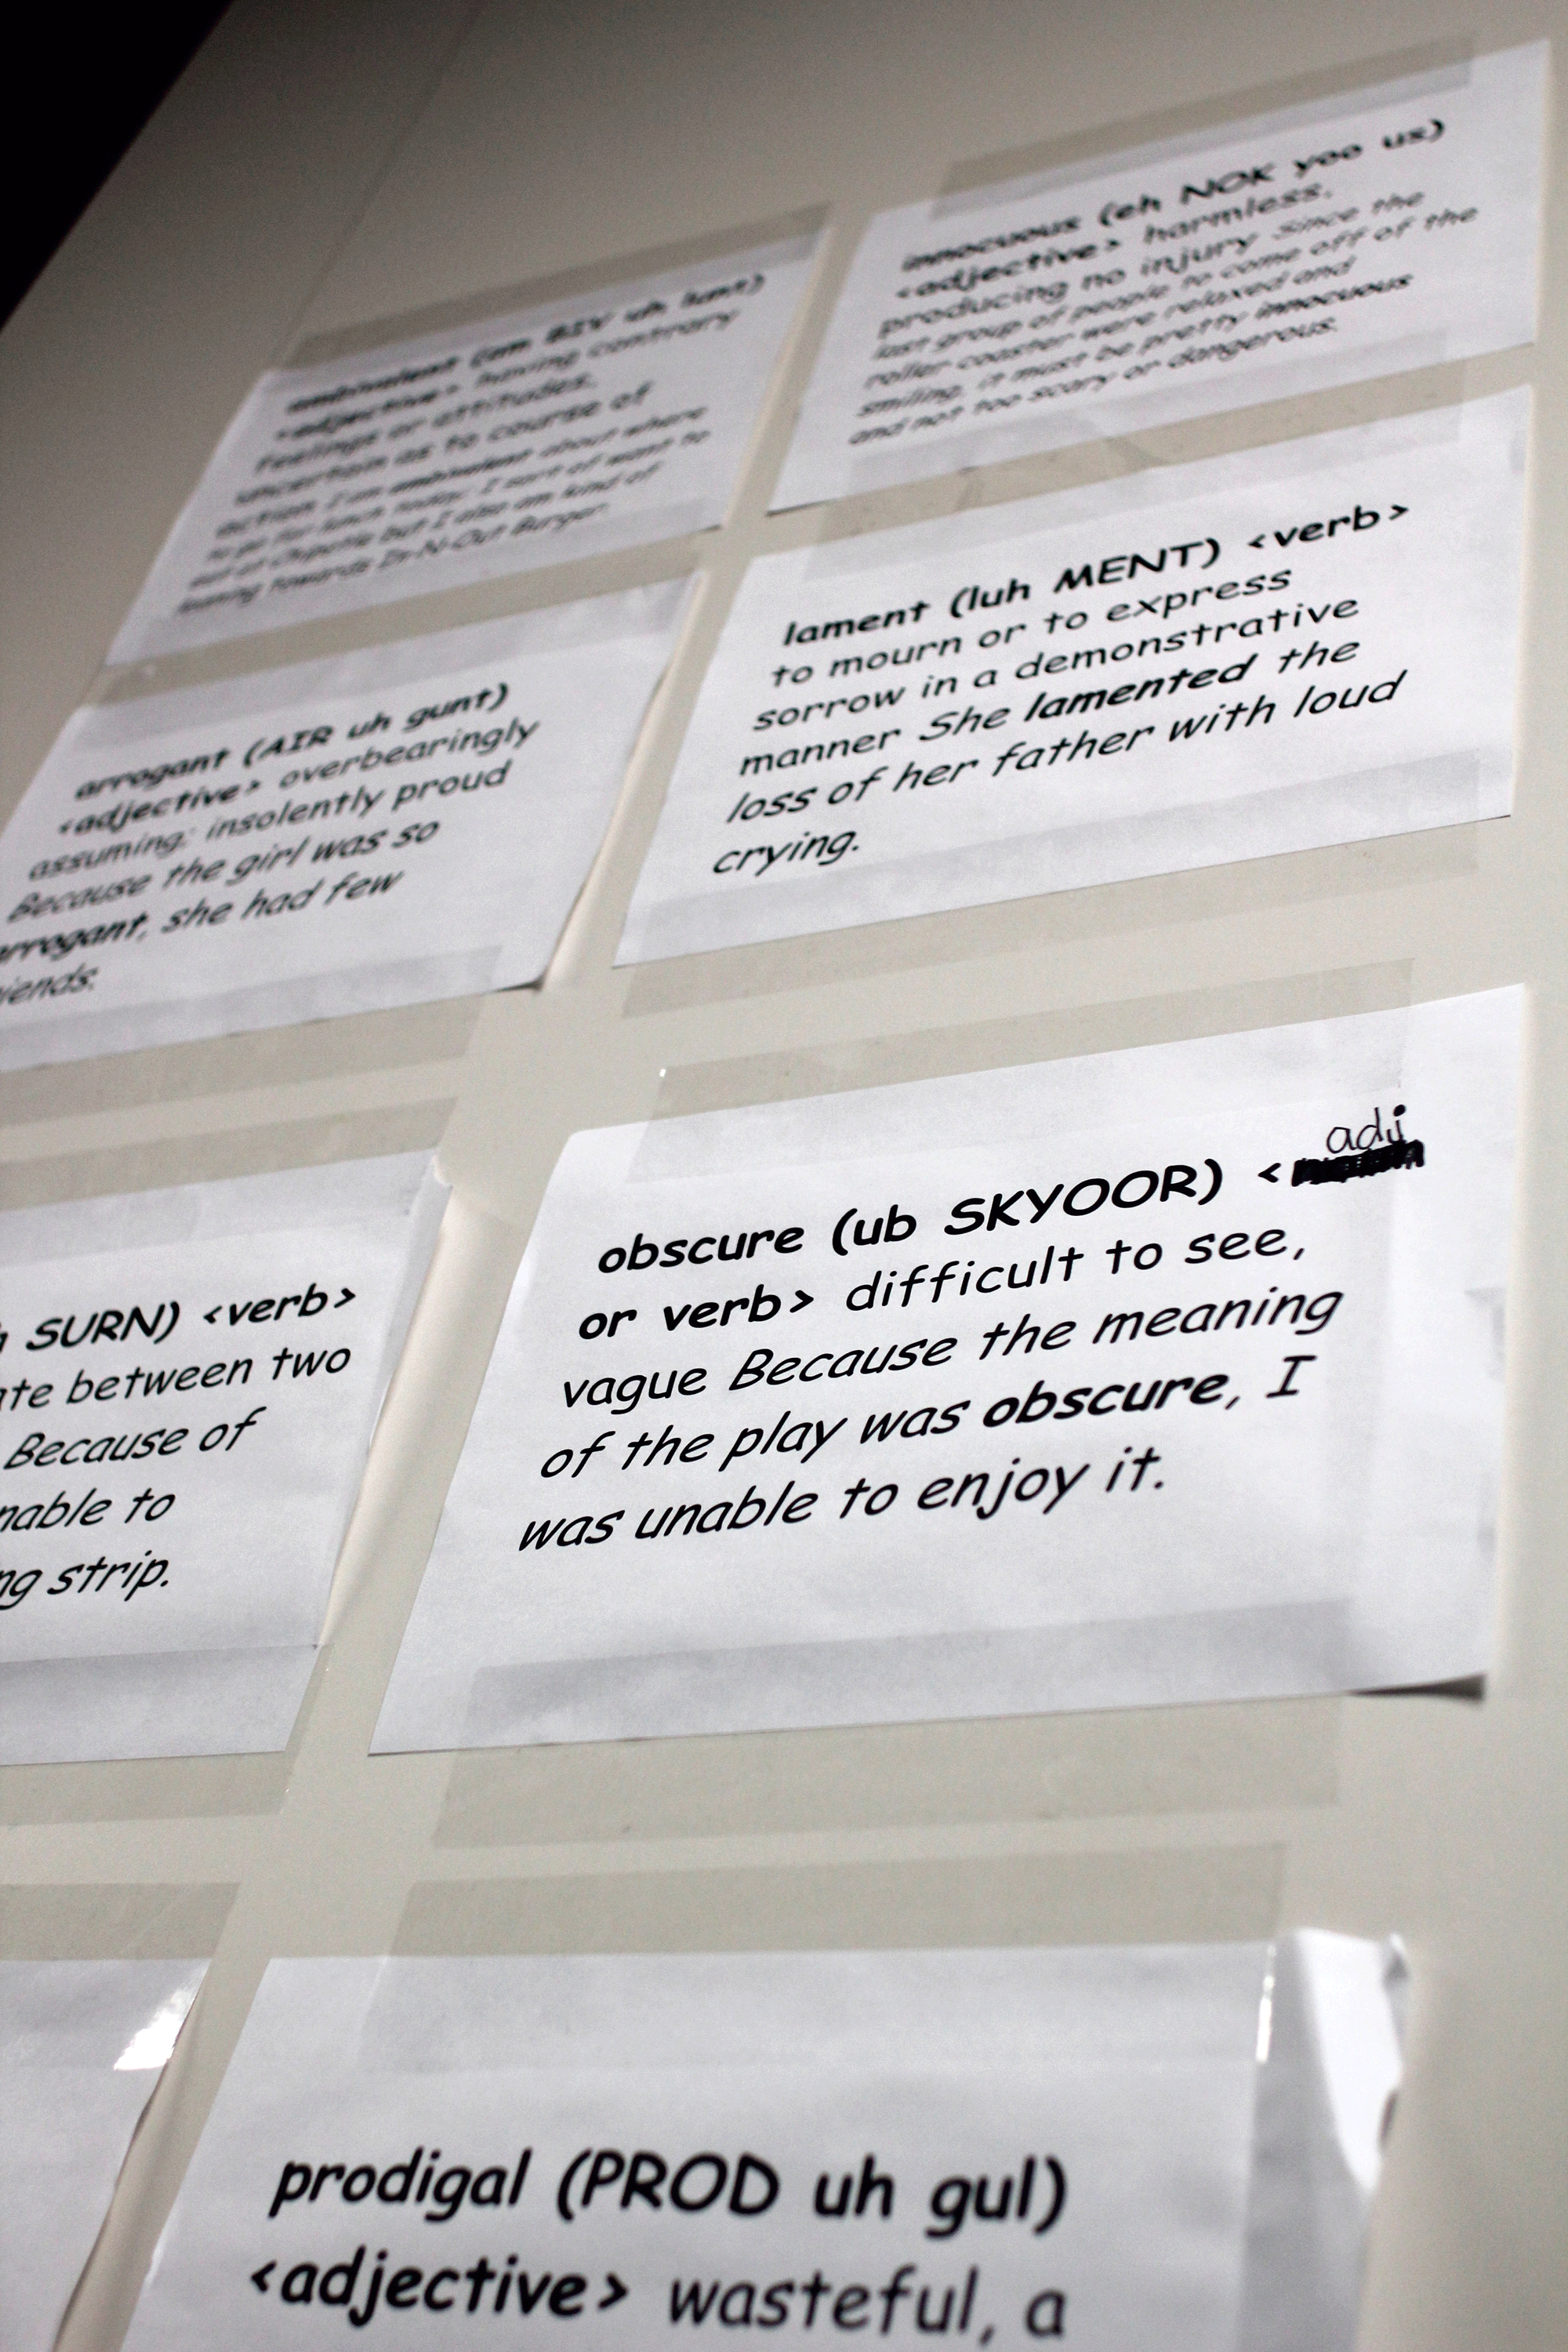 innocuous (eh NOK yoo us)
<adjective> harmless.
producing no injury Since the
last group of people to come off of the
roller coaster were relaxed and
smiling, it must be pretty innocuous
and not too scary or dangerous.
ambivalent (am BIV uh lunt)
<adjective> having contrary
feelings or attitudes.
uncertain as to course of
action I am ambivalent about where
to go for lunch today; I sort of want to
eat at Chipotle but I also am kind of
leaning towards In-N-Out Burger.
lament (luh MENT) <verb>
to mourn or to express
sorrow in a demonstrative
manner She lamented the
loss of her father with loud
crying.
arrogant (AIR uh gunt)
<adjective> overbearingly
assuming; insolently proud
Because the girl was so
arrogant, she had few
iends.
obscure (ub SKYOOR) < adj
or verb> difficult to see,
vague Because the meaning
of the play was obscure, I
was unable to enjoy it.
SURN) <verb>
te between two
Because of
nable to
ng strip.
prodigal (PROD uh gul)
<adjective> wasteful, a